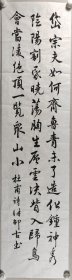 岱宗夫如何齊魯青未了造化鍾神秀
陰陽割昏曉蕩胸生層雲決眥入歸鳥
會當凌絕頂一覽衆山小 杜甫詩